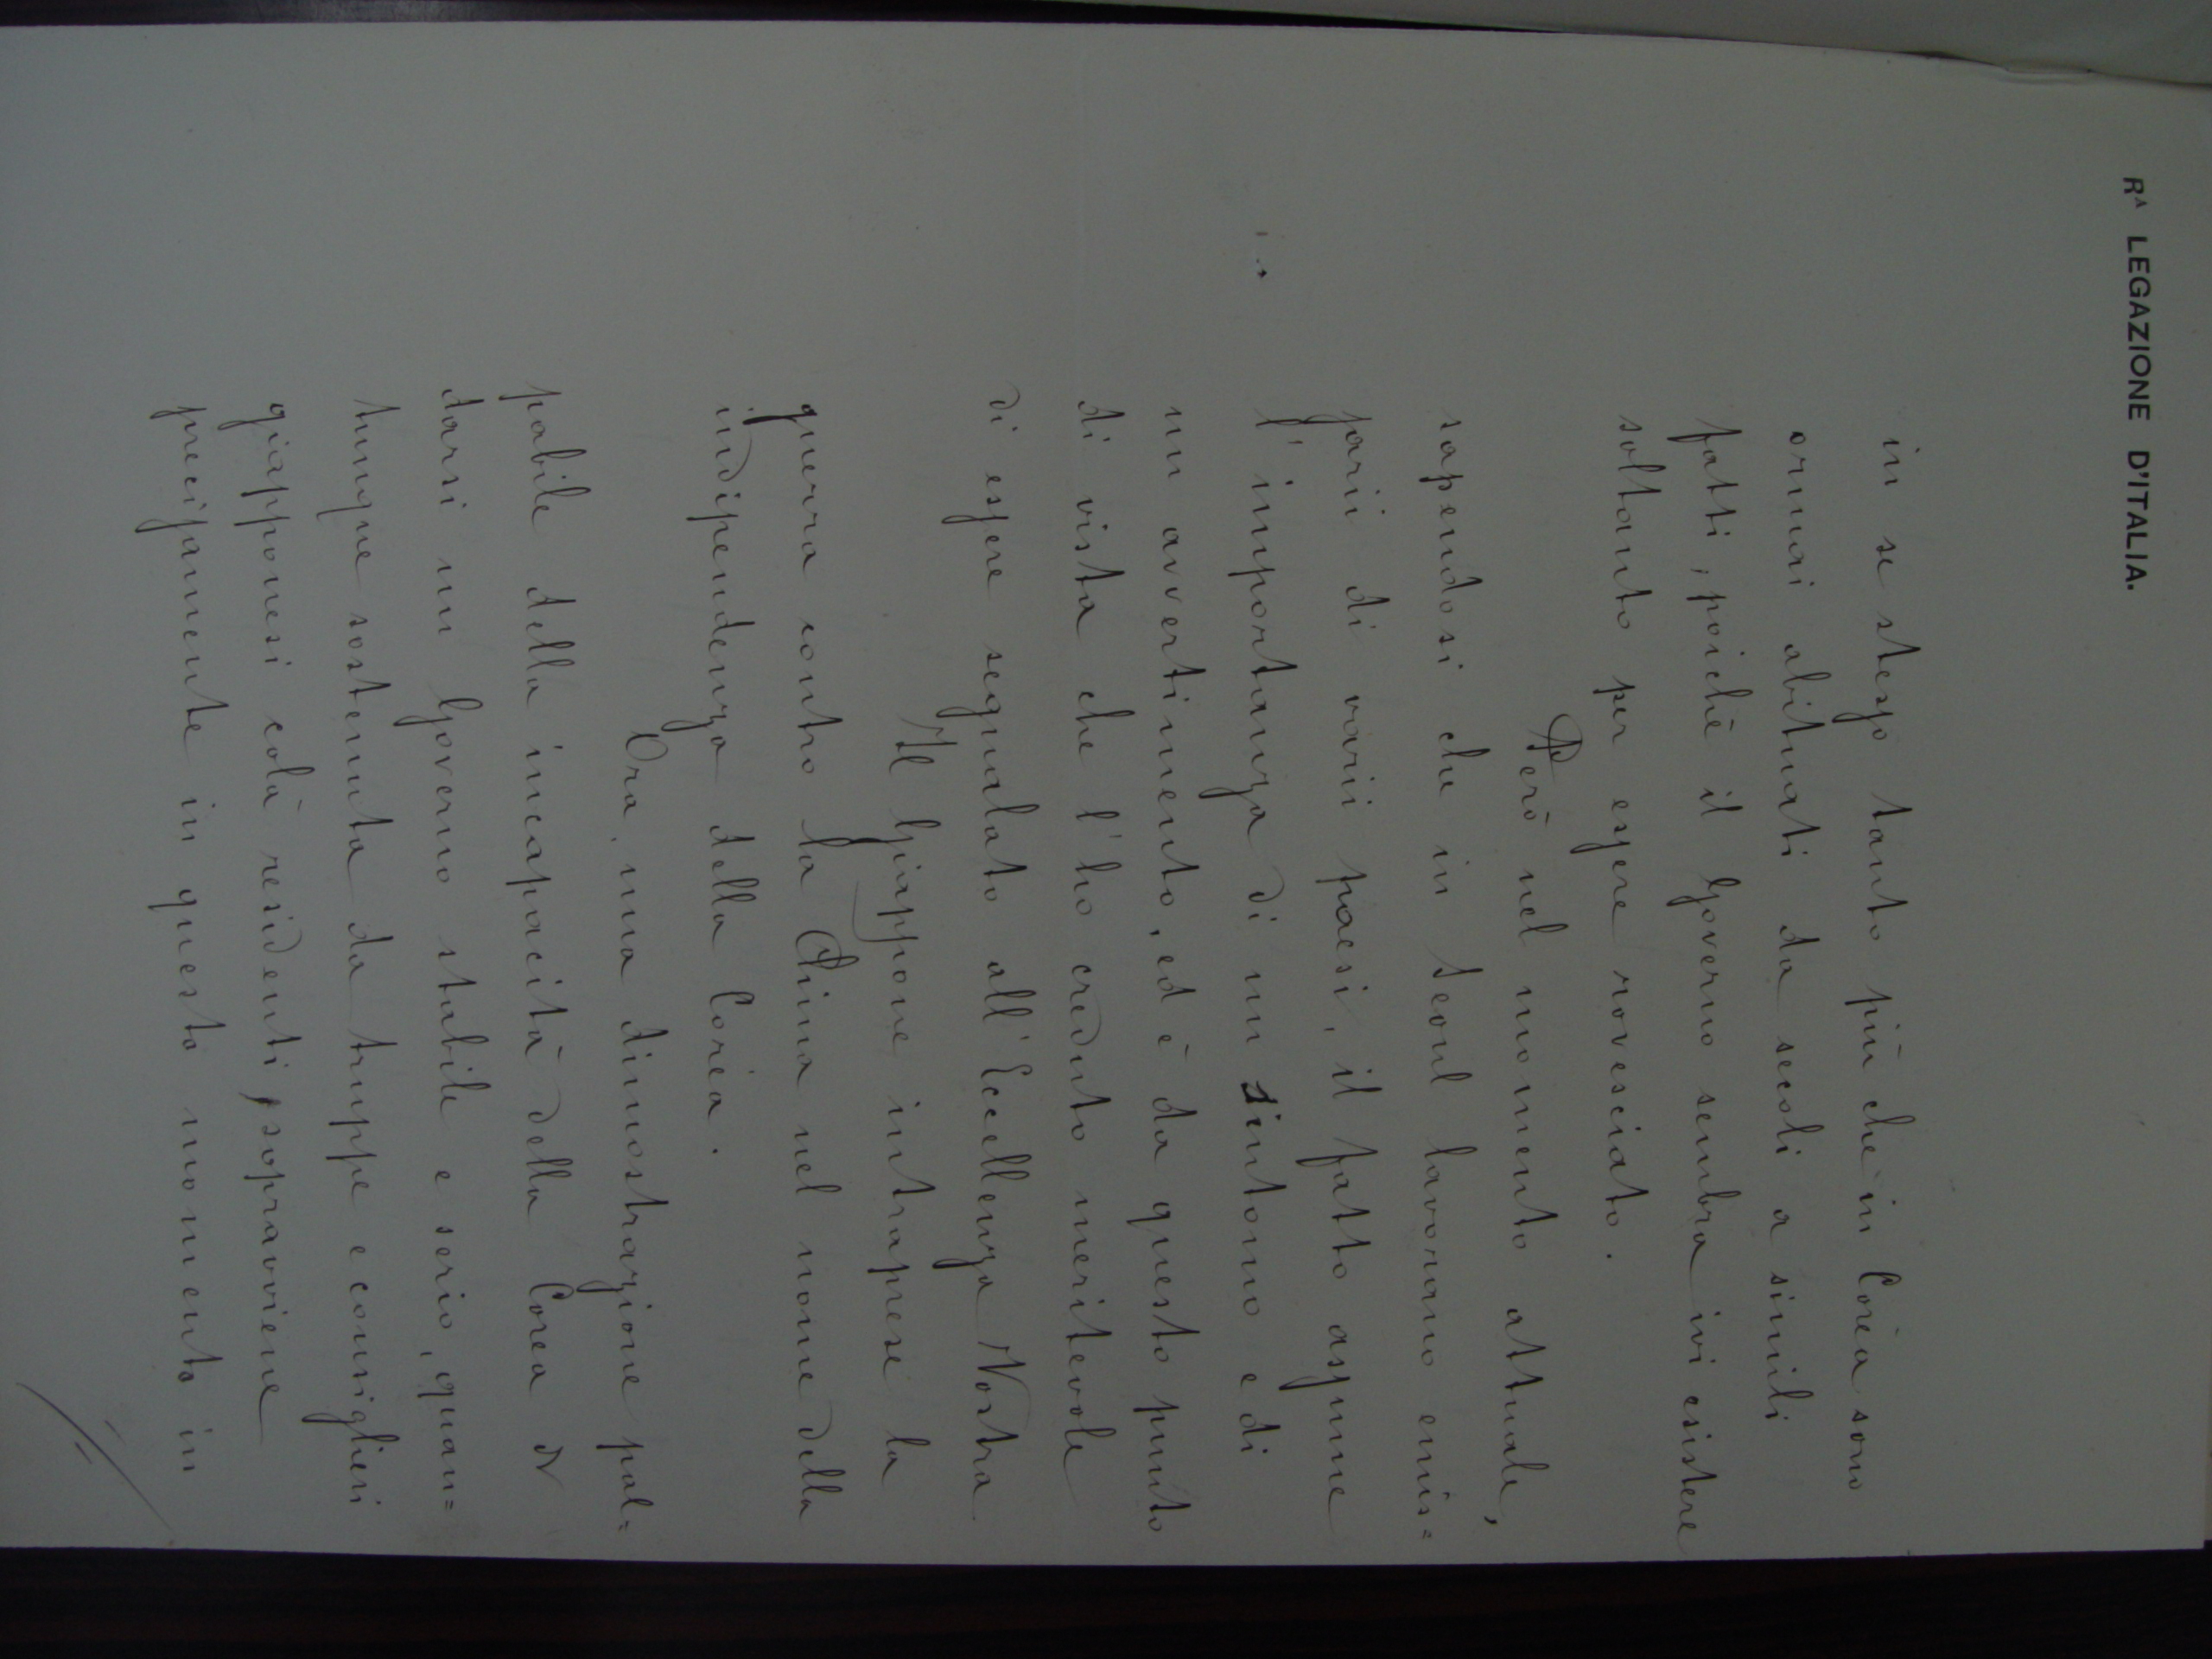 Rᴬ LEGAZIONE D'ITALIA.
in se stesso tanto più che in Corèa sono
ormai abituati da secoli a simili
fatti, poichè il Governo sembra ivi esistere
soltanto per essere rovesciato.
Però nel momento attuale,
sapendosi che in Seoul lavorano emis=
sarii di varii paesi, il fatto assume
l'importanza di un sintomo e di
un avvertimento, ed è da questo punto
di vista che l'ho creduto meritevole
di essere segnalato all'Eccellenza Vostra
Il Giappone intraprese la
guerra contro la China nel nome della
indipendenza della Corèa.
Ora, una dimostrazione pal=
pabile della incapacità della Corea a
darsi un Governo stabile e serio, quan=
tunque sostenuta da truppe e consiglieri
giapponesi colà residenti, sopravviene
precisamente in questo momento in